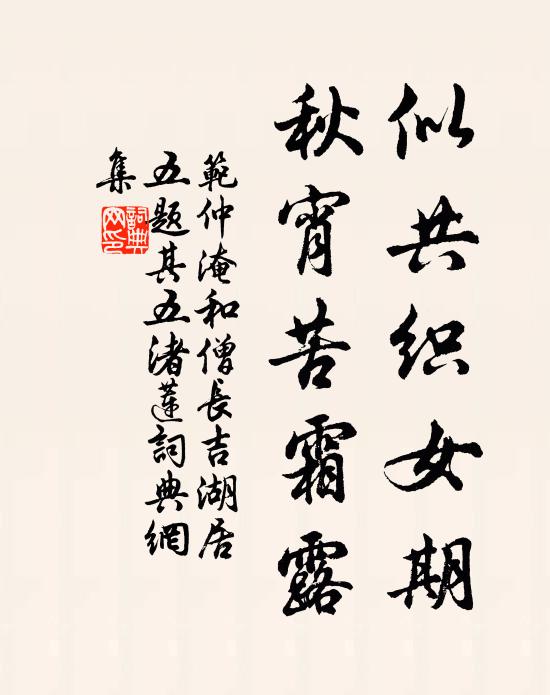 似共织女期
秋宵苦霜露
範仲淹和僧長吉湖居
五题其五渚莲詞典網
集
詞典